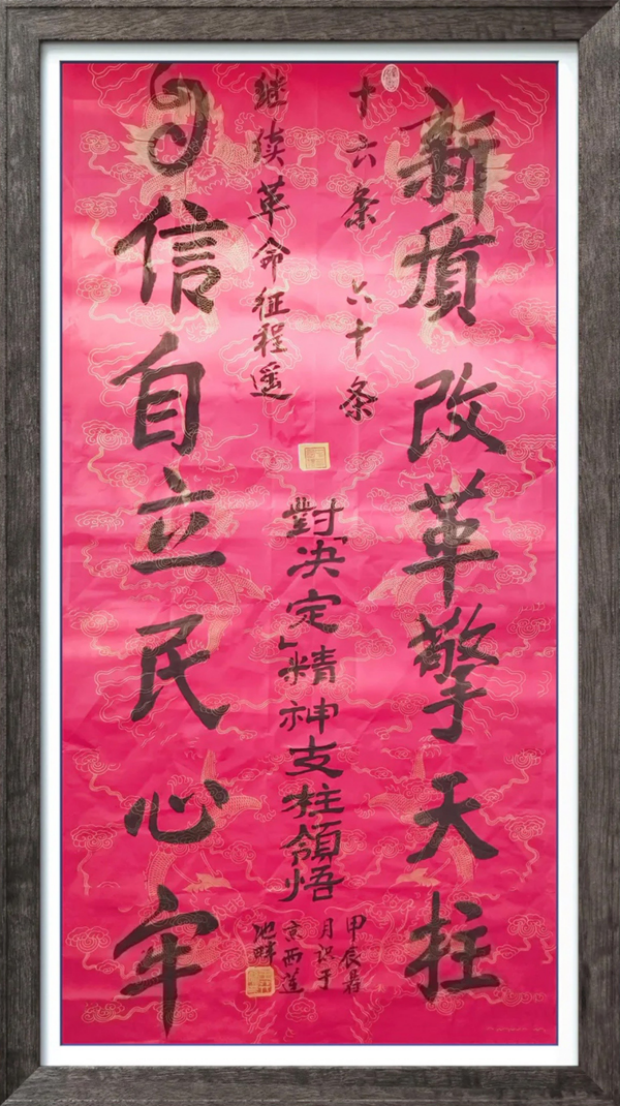 新质改革擎天柱
十六条 六十条
继续革命征程遥
對「决定」精神支柱領悟
甲辰暑
月识于
京西莲
池畔
信自立民心牢